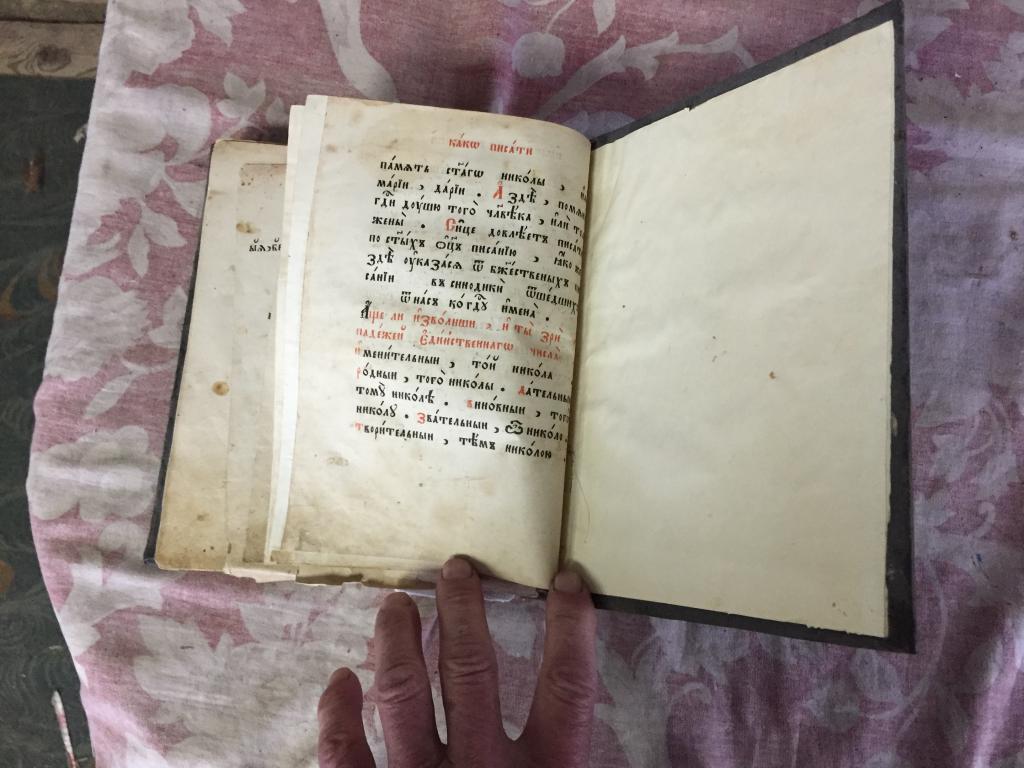 ка́кѡ писа́ти
па́мѧть ст҃а́гѡ нико́лы ,
марі́и , да́рїи . А҆ здѣ̀ ,
гдⷭ҇и дꙋ́шꙋ того̀ чл҃вѣ́ка , и҆лѝ
жены̀ . Си́це довлѣ́етъ
по ст҃ы́хъ ѻ҆ц҃ъ писа́нїю , ꙗ҆́ко
здѣ̀ ᲂу҆каза́сѧ ѿ бж҃е́ственыхъ
са́нїи въ синодики ѿше́дшихъ
ѿ на́съ ко гдⷭ҇ꙋ и҆мена̀ .
А҆́ще ли и҆зво́лиши , и҆ ты̀ зрѝ
паде́жей є҆ди́нственнагѡ числа̀
и҆мени́тельныи , то́й нико́ла
ро́дныи , того̀ нико́лы . да́тельныи
томꙋ̀ нико́лѣ . вино́вныи , того̀
нико́лꙋ . Зва́тельныи , Ѽ нико́ло .
твори́тельныи , тѣ́мъ нико́лою